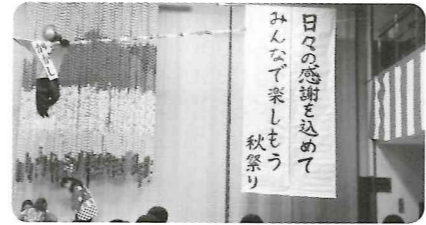 日々の感謝を込めて
みんなで楽しもう
秋祭り